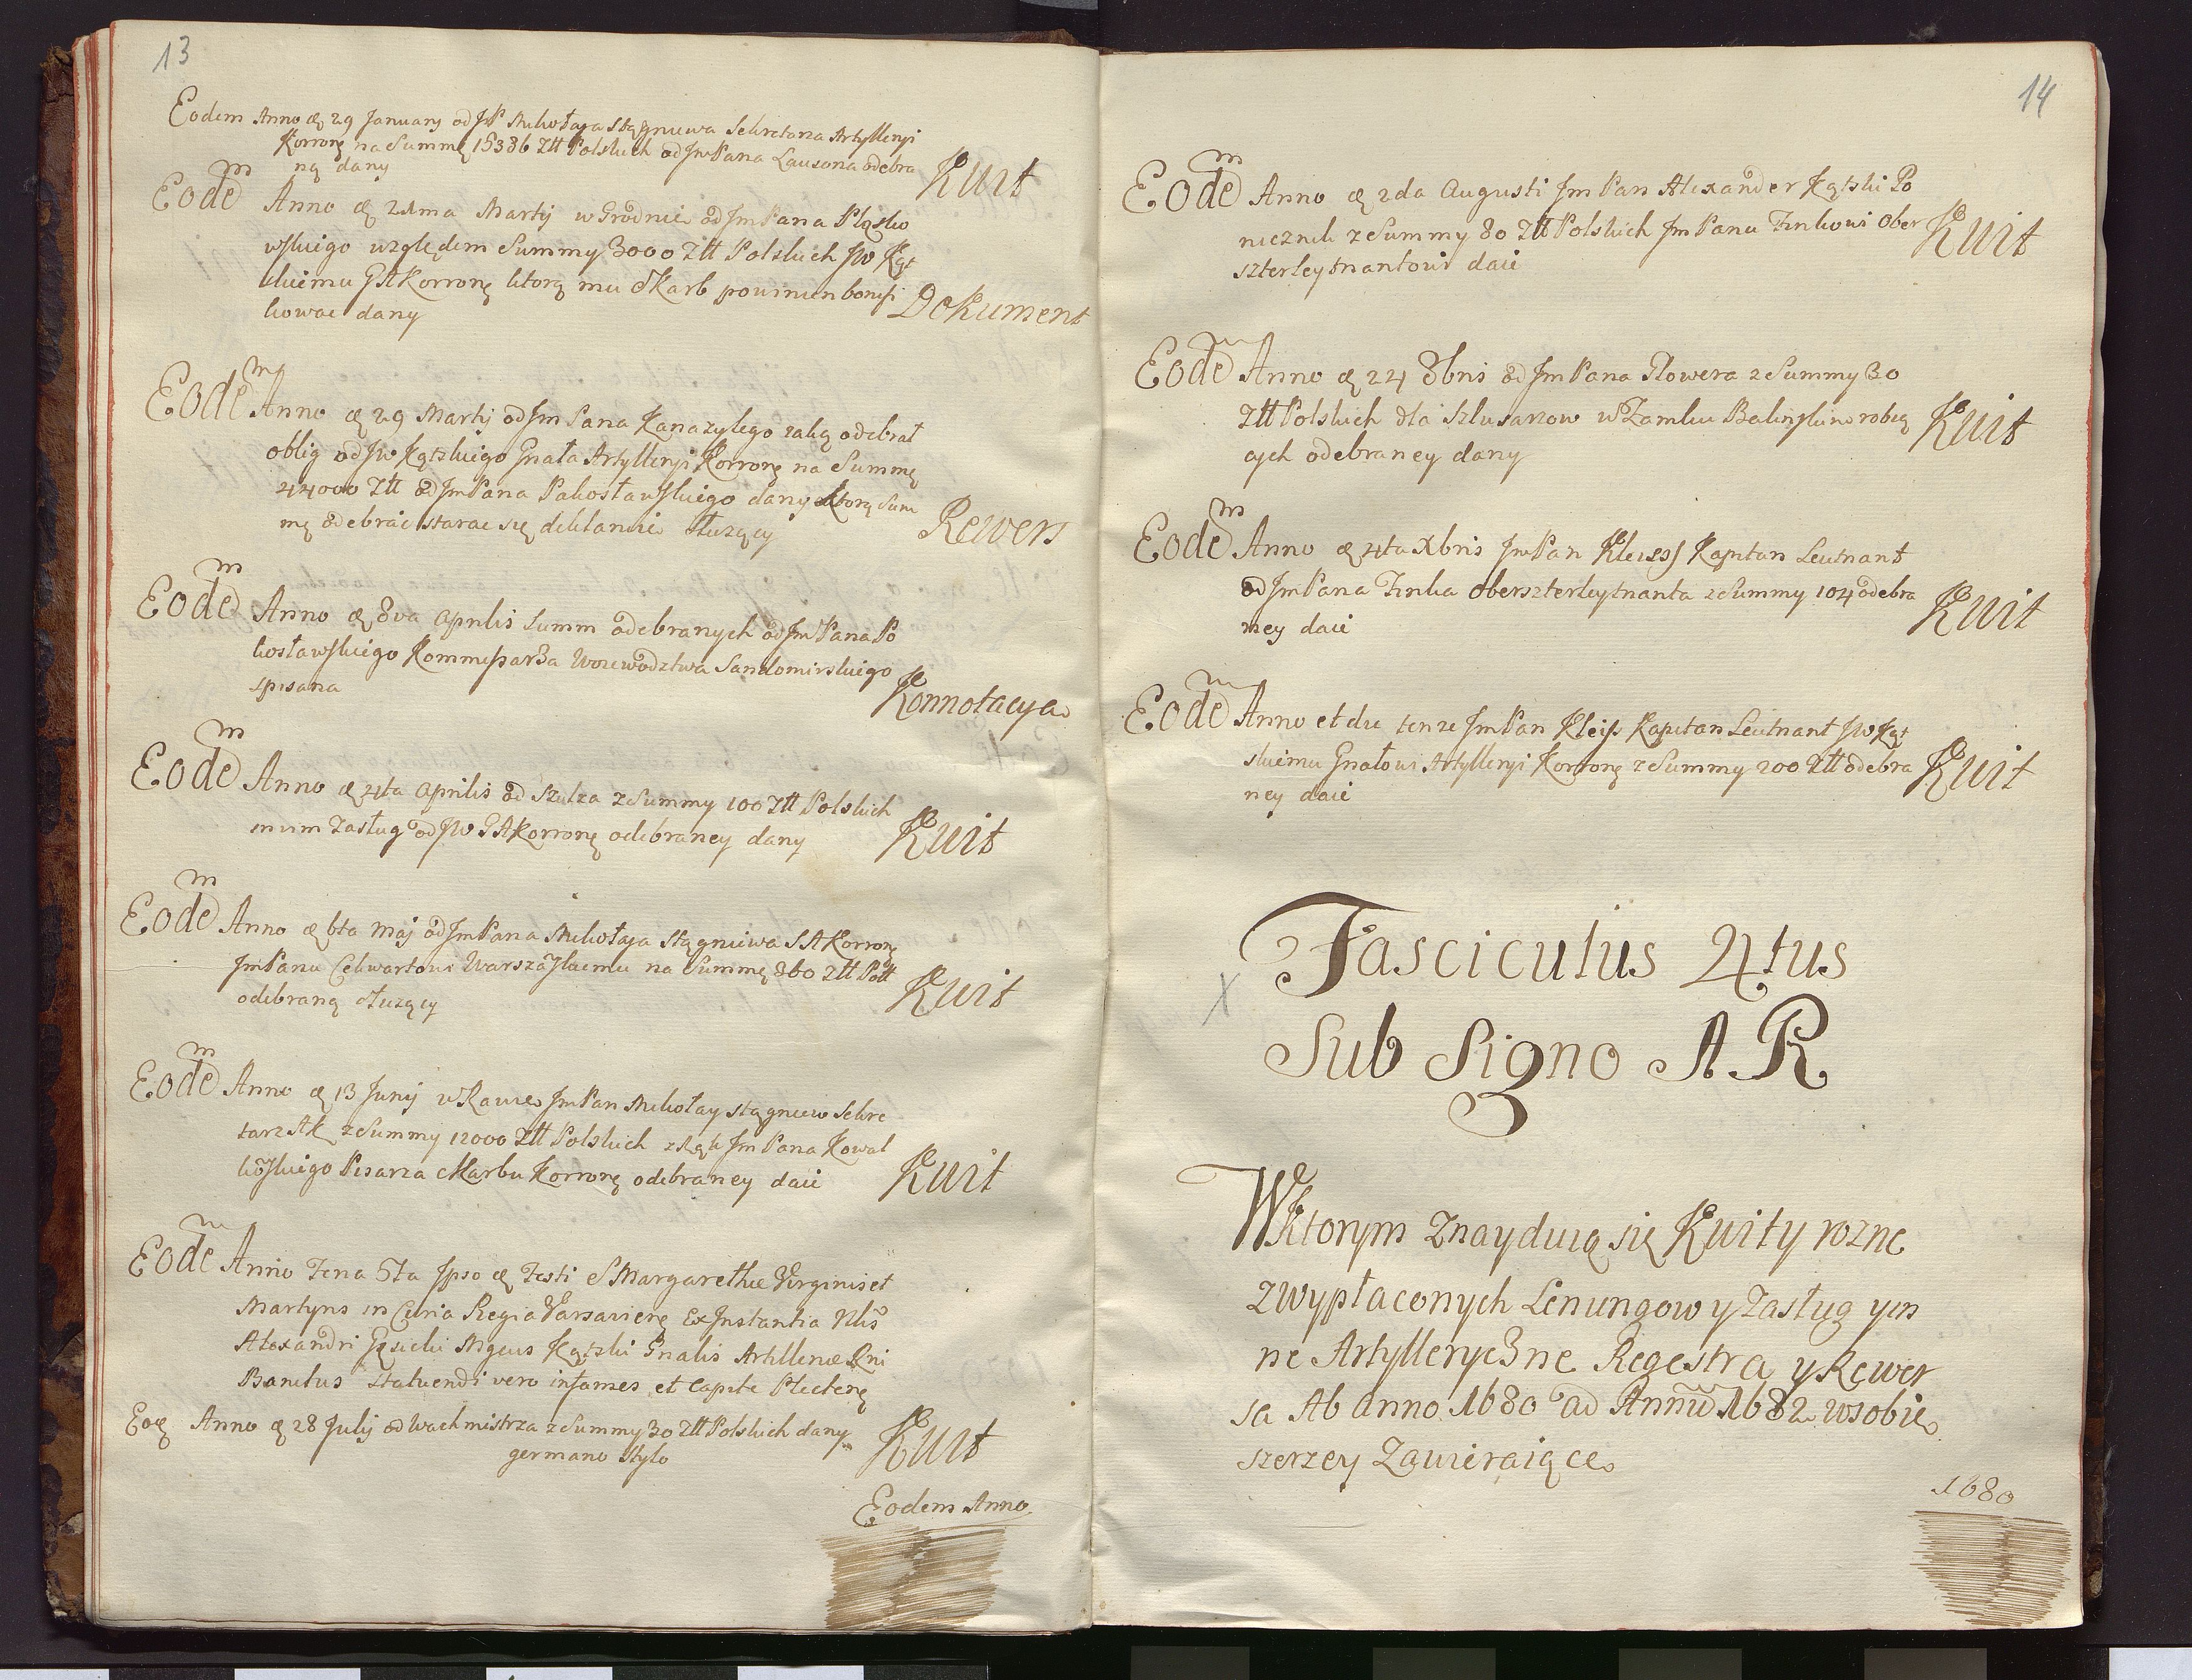 13
Eodem Anno & 29 January od JP Mikołaya Stągniewa Sekretarza Artylleryi
Korronę na Summę 15386 Złł Polskich od JmPana Lausona odebra
ną dany Kuit
Eodem Anno & 21ma Martij w Grodnie od JmPana Pląsko
wskiego względem Summy 3000 Złł Polskich JW Kąt
skiemu GAKorronę ktorą mu Skarb powinien bonifi
kowac dany Dokument
Eodem Anno & 29 Martij od Jm Pana Kanazylego iaką odebrał
oblig od JW Kątskiego Gnała Artylleryi Korronę na Summę
44000 Złł od JmPana Pakosławskiego dany ktorą Sum
mę odebrać starac się deklaruie służący Rewers
Eodem Anno & 8va Aprilis Summ odebranych od Jm Pana Po
kosławskiego Kommissarza Woiewodztwa Sandomirskiego
spisana Konnotacya
Eodem Anno & 4ta Aprilis od Szulza z Summy 100 Złł Polskich
inum Zasług od JW GAKorronę odebraney dany Kuit
Eodem Anno & 6ta Maj od JmPana Mikołaya Stągniewa SAKorronę
JmPanu Cekwartowi Warszawskiemu na Summę 360 Złł Poll
odebraną służący Kuit
Eodem Anno & 13 Junij w Rawie JmPan Mikołay Stągniew Sekre
tarz AK z Summy 12000 Złł Polskich z Rąk Jm Pana Kowal
kowskiego Pisarza Skarbu Korronę odebraney daie Kuit
Eodem Anno Feria 5ta Ipso & Festi S Margarethæ Virginis et
Martyris in Curia Regia Varsavienę Ex Instantia Nlis
Alexandri Gęsicki Mgcus Kątski Gnalis Artilleriæ Rni
Banitus statuendi vero infames et Capite Plectenę
Eoę Anno & 28 Julij od Wachmistrza z Summy 30 Złł Polskich dany
germano Stylo Kuit
Eodem Anno
14
Eodem Anno & 2da Augusti Jm Pan Alexander Kątski Po
rucznik z Summy 80 Złł Polskich Jm Panu Finkowi Ober
szterleytnantowi daie Kuit
Eodem Anno & 24 8bris od Jm Pana Flowera z Summy 30
Złł Polskich dla Szlusarzow w Zamku Balinskim robią
cych odebraney dany Kuit
Eodem Anno & 4ta Xbris JmPan Kleiss Kapitan Leutnant
od JmPana Finka Oberszterleytnanta z Summy 104 odebra
ney daie Kuit
Eodem Anno et die tenze JmPan Kleiss Kapitan Leutnant JW Kąt
skiemu Gnałowi Artylleryi Korronę z Summy 200 Złł odebra
ney daie Kuit
Fasciculus 4tus
X
Sub Signo A R
W Ktorym Znayduią się Kuity rozne
z wypłaconych Lenungow y Zasług yin
ne Artylleryczne Regestra y Rewer
sa Ab Anno 1680 ad Annum 1682 w sobie
szerzey Zawieraiące
1680